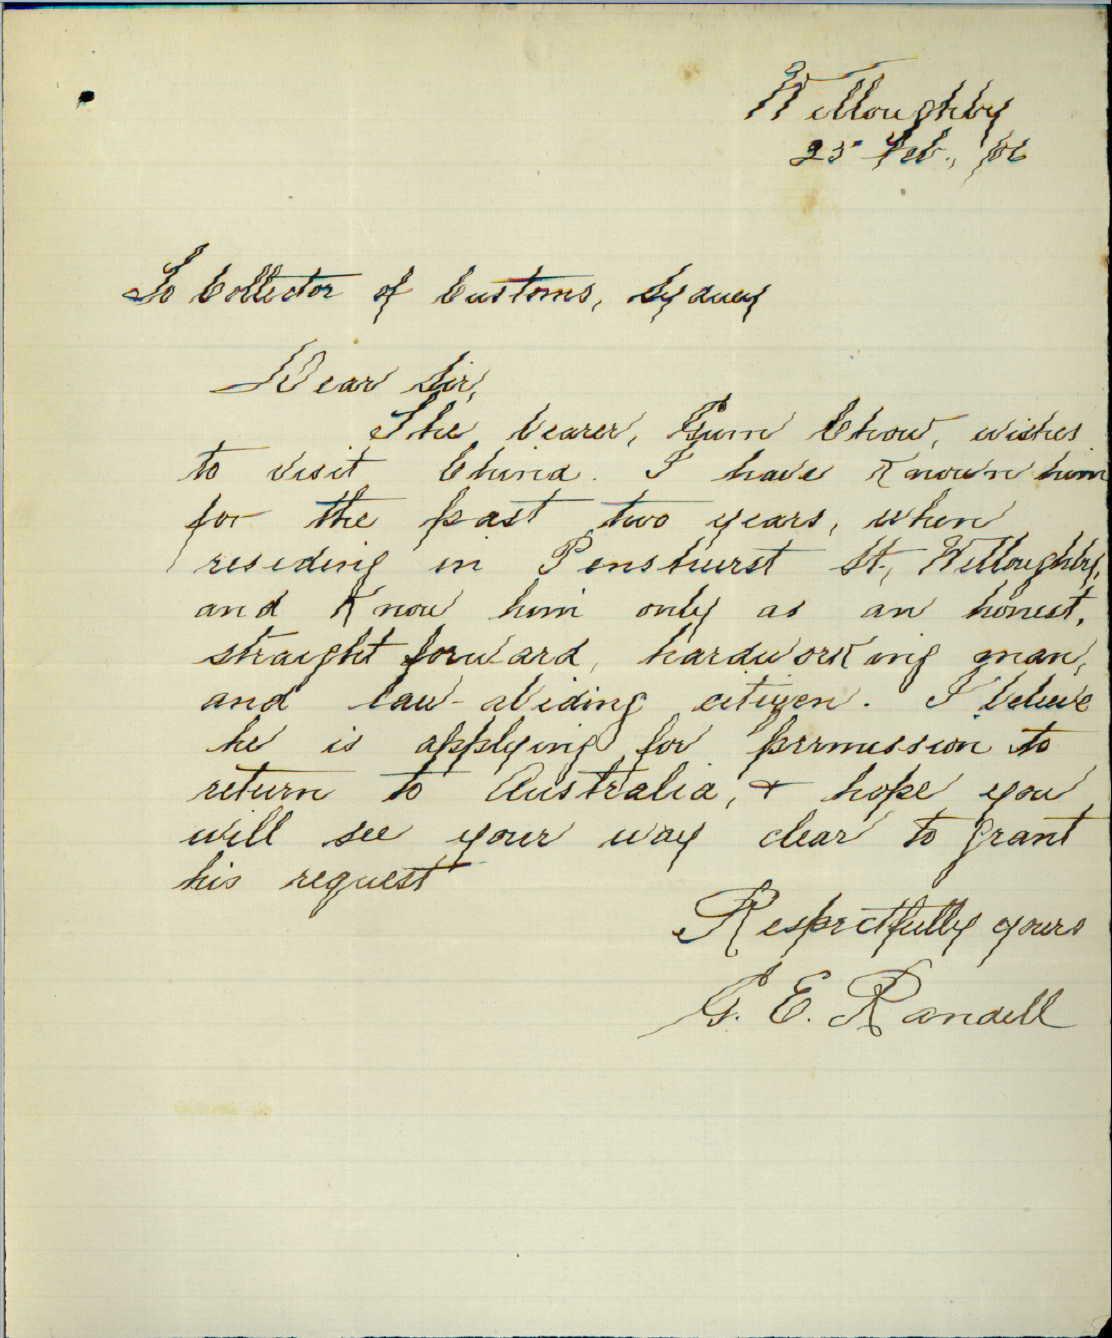 Willoughby
25 Feb., '06
To Collector of Customs, Sydney
Dear Sir,
The bearer, Gum Chow, wishes
to visit China. I have known him
for the past two years, when
residing in Penshurst St., Willoughby,
and know him only as an honest,
straight forward, hardworking man,
and law-abiding citizen. I believe
he is applying for permission to
return to Australia, & hope you
will see your way clear to grant
his request
Respectfully yours
G. E. Randell